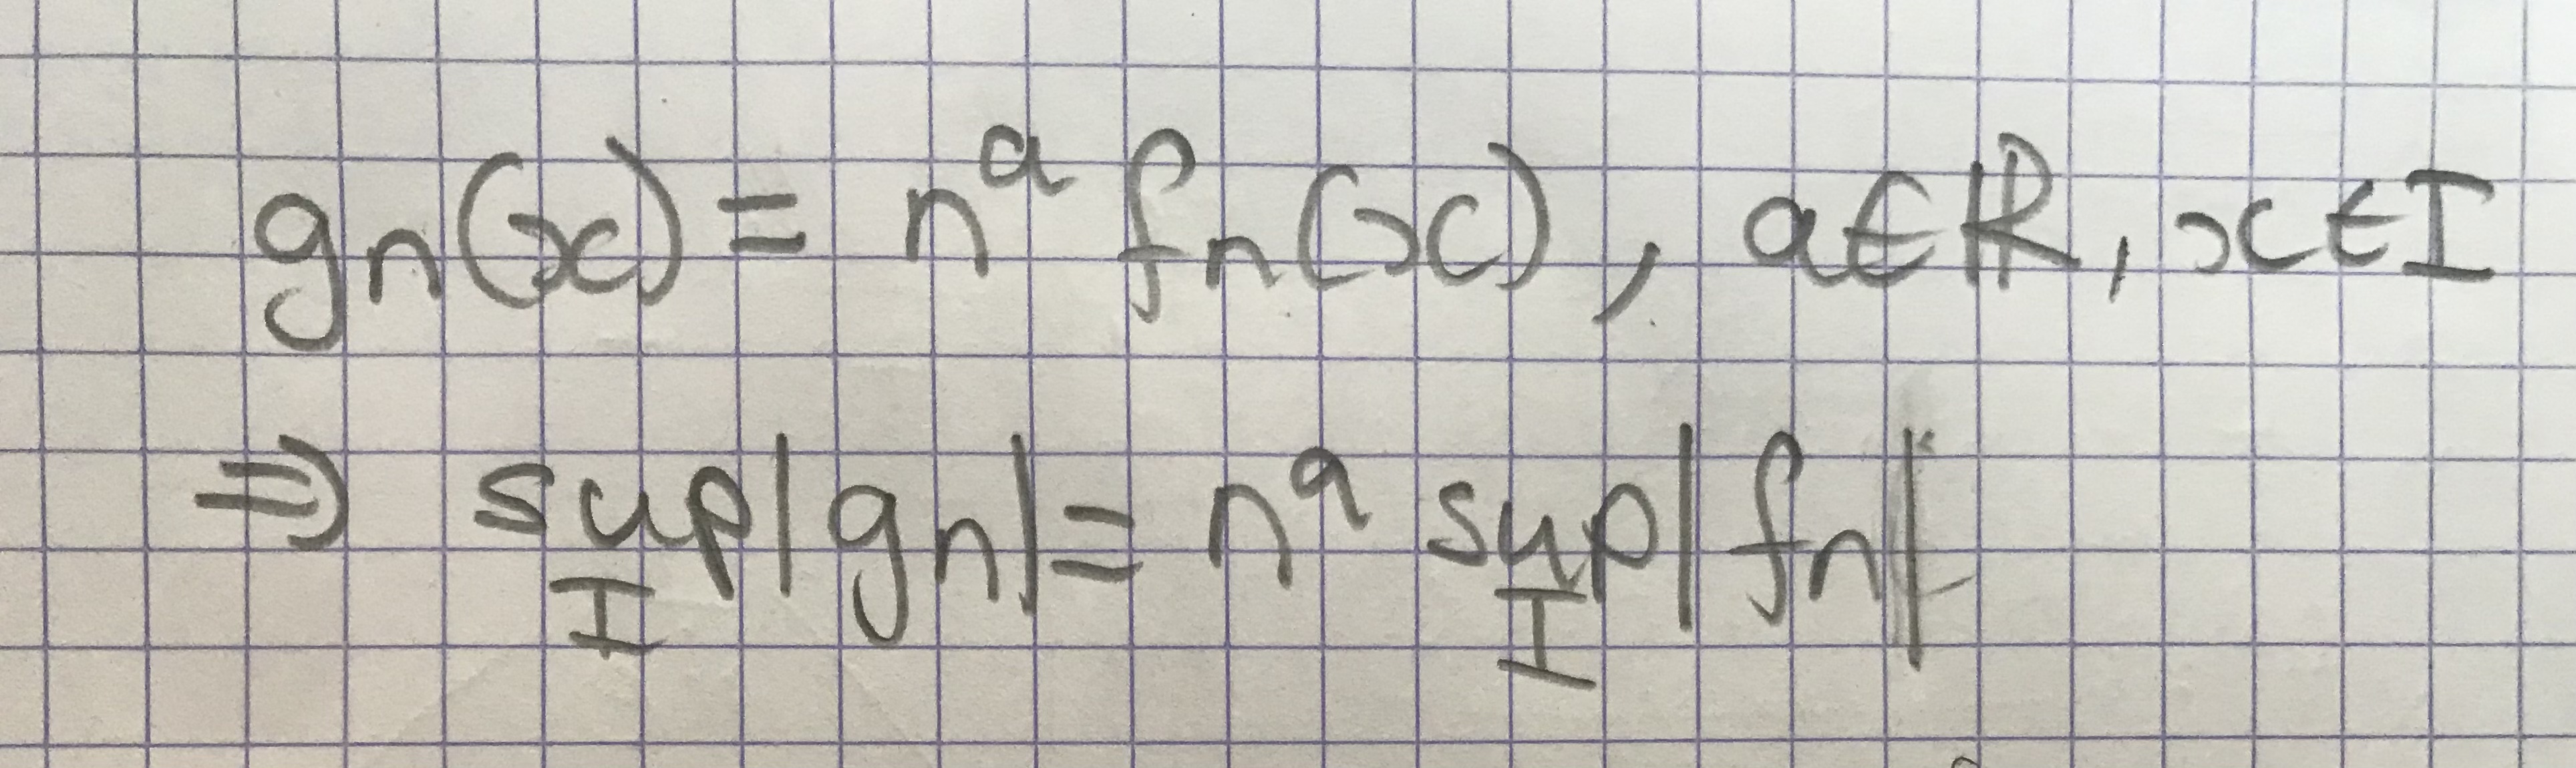 gn(x) = n^a fn(x), a∈ℝ, x∈I
⇒ sup_I |gn| = n^a sup_I |fn|